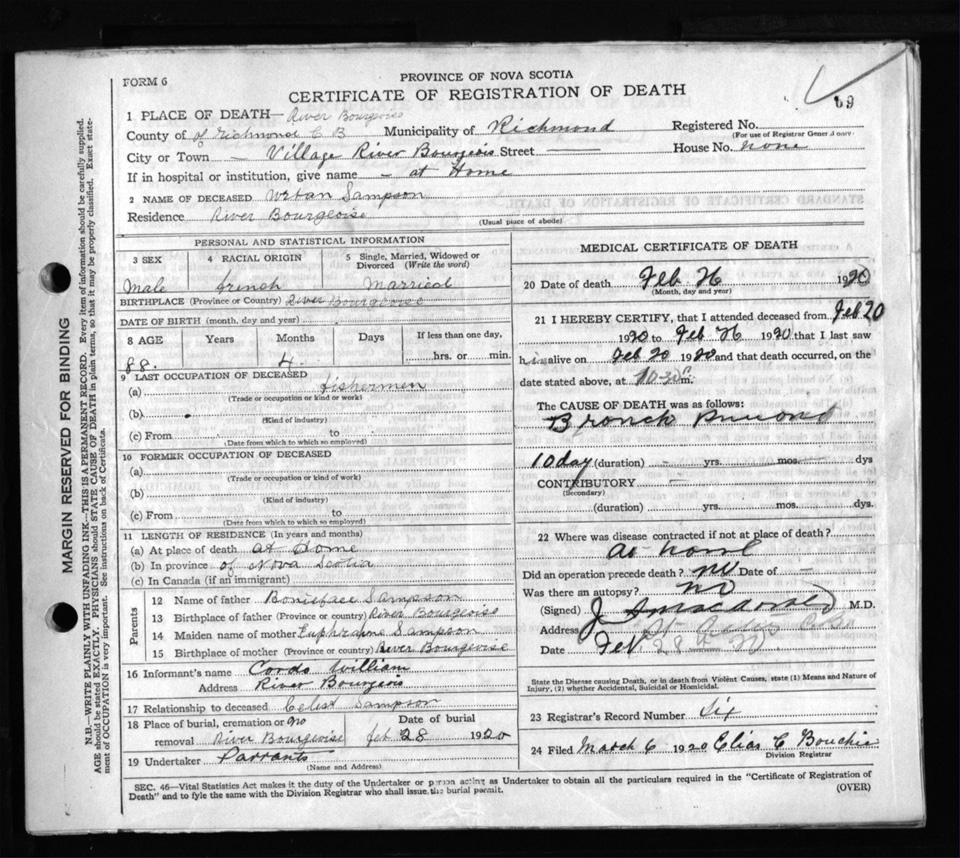 FORM 6
PROVINCE OF NOVA SCOTIA
CERTIFICATE OF REGISTRATION OF DEATH
69
1 PLACE OF DEATH— River Bourgeois
County of of Richmond C B Municipality of Richmond Registered No.
(For use of Registrar General only)
City or Town — Village River Bourgeois Street — House No. none
If in hospital or institution, give name — at Home
2 NAME OF DECEASED Urban Sampson
Residence River Bourgeoise
(Usual place of abode)
PERSONAL AND STATISTICAL INFORMATION
3 SEX 4 RACIAL ORIGIN 5 Single, Married, Widowed or Divorced (Write the word)
Male french Married
BIRTHPLACE (Province or Country) River Bourgeoise
DATE OF BIRTH (month, day and year)
8 AGE Years Months Days If less than one day,
88. 4 hrs. or min.
9 LAST OCCUPATION OF DECEASED
(a) fishermen
(Trade or occupation or kind or work)
(b)
(Kind of industry)
(c) From to
(Date from which to which followed)
10 FORMER OCCUPATION OF DECEASED
(a)
(Trade or occupation or kind or work)
(b)
(Kind of industry)
(c) From to
(Date from which to which followed)
11 LENGTH OF RESIDENCE (In years and months)
(a) At place of death at Home
(b) In province of Nova Scotia
(c) In Canada (if an immigrant)
Parents
12 Name of father Boniface Sampson
13 Birthplace of father (Province or country) River Bourgeoise
14 Maiden name of mother Sampson
15 Birthplace of mother (Province or country) River Bourgeoise
16 Informant's name Cordo William
Address River Bourgeois
17 Relationship to deceased Celest Sampson
18 Place of burial, cremation or removal River Bourgeoise
Date of burial
feb 28 1920
19 Undertaker Parrants
(Name and Address)
MEDICAL CERTIFICATE OF DEATH
20 Date of death Feb 26 1920
(Month, day and year)
21 I HEREBY CERTIFY, that I attended deceased from Feb 20
1920 to Feb 26 1920 that I last saw
him alive on Feb 20 1920 and that death occurred, on the
date stated above, at 10 30 m.
The CAUSE OF DEATH was as follows:
Bronch
10 day (duration) yrs. mos. dys
CONTRIBUTORY —
(Secondary)
(duration) yrs. mos. dys.
22 Where was disease contracted if not at place of death?
at home
Did an operation precede death? no Date of —
Was there an autopsy? no
(Signed) J M.D.
Address St.
Date Feb 28 20.
State the Disease causing Death, or in death from Violent Causes, state (1) Means and Nature of
Injury, (2) whether Accidental, Suicidal or Homicidal.
23 Registrar's Record Number Six
24 Filed March 6 1920 Elias C
Division Registrar
SEC. 46—Vital Statistics Act makes it the duty of the Undertaker or person acting as Undertaker to obtain all the particulars required in the "Certificate of Registration of
Death" and to fyle the same with the Division Registrar who shall issue the burial permit.
(OVER)
MARGIN RESERVED FOR BINDING
N.B.—WRITE PLAINLY WITH UNFADING INK—THIS IS A PERMANENT RECORD. Every item of information should be carefully supplied.
AGE should be stated EXACTLY. PHYSICIANS should STATE CAUSE OF DEATH in plain terms, so that it may be properly classified. Exact state-
ment of OCCUPATION is very important. See instructions on back of Certificate.